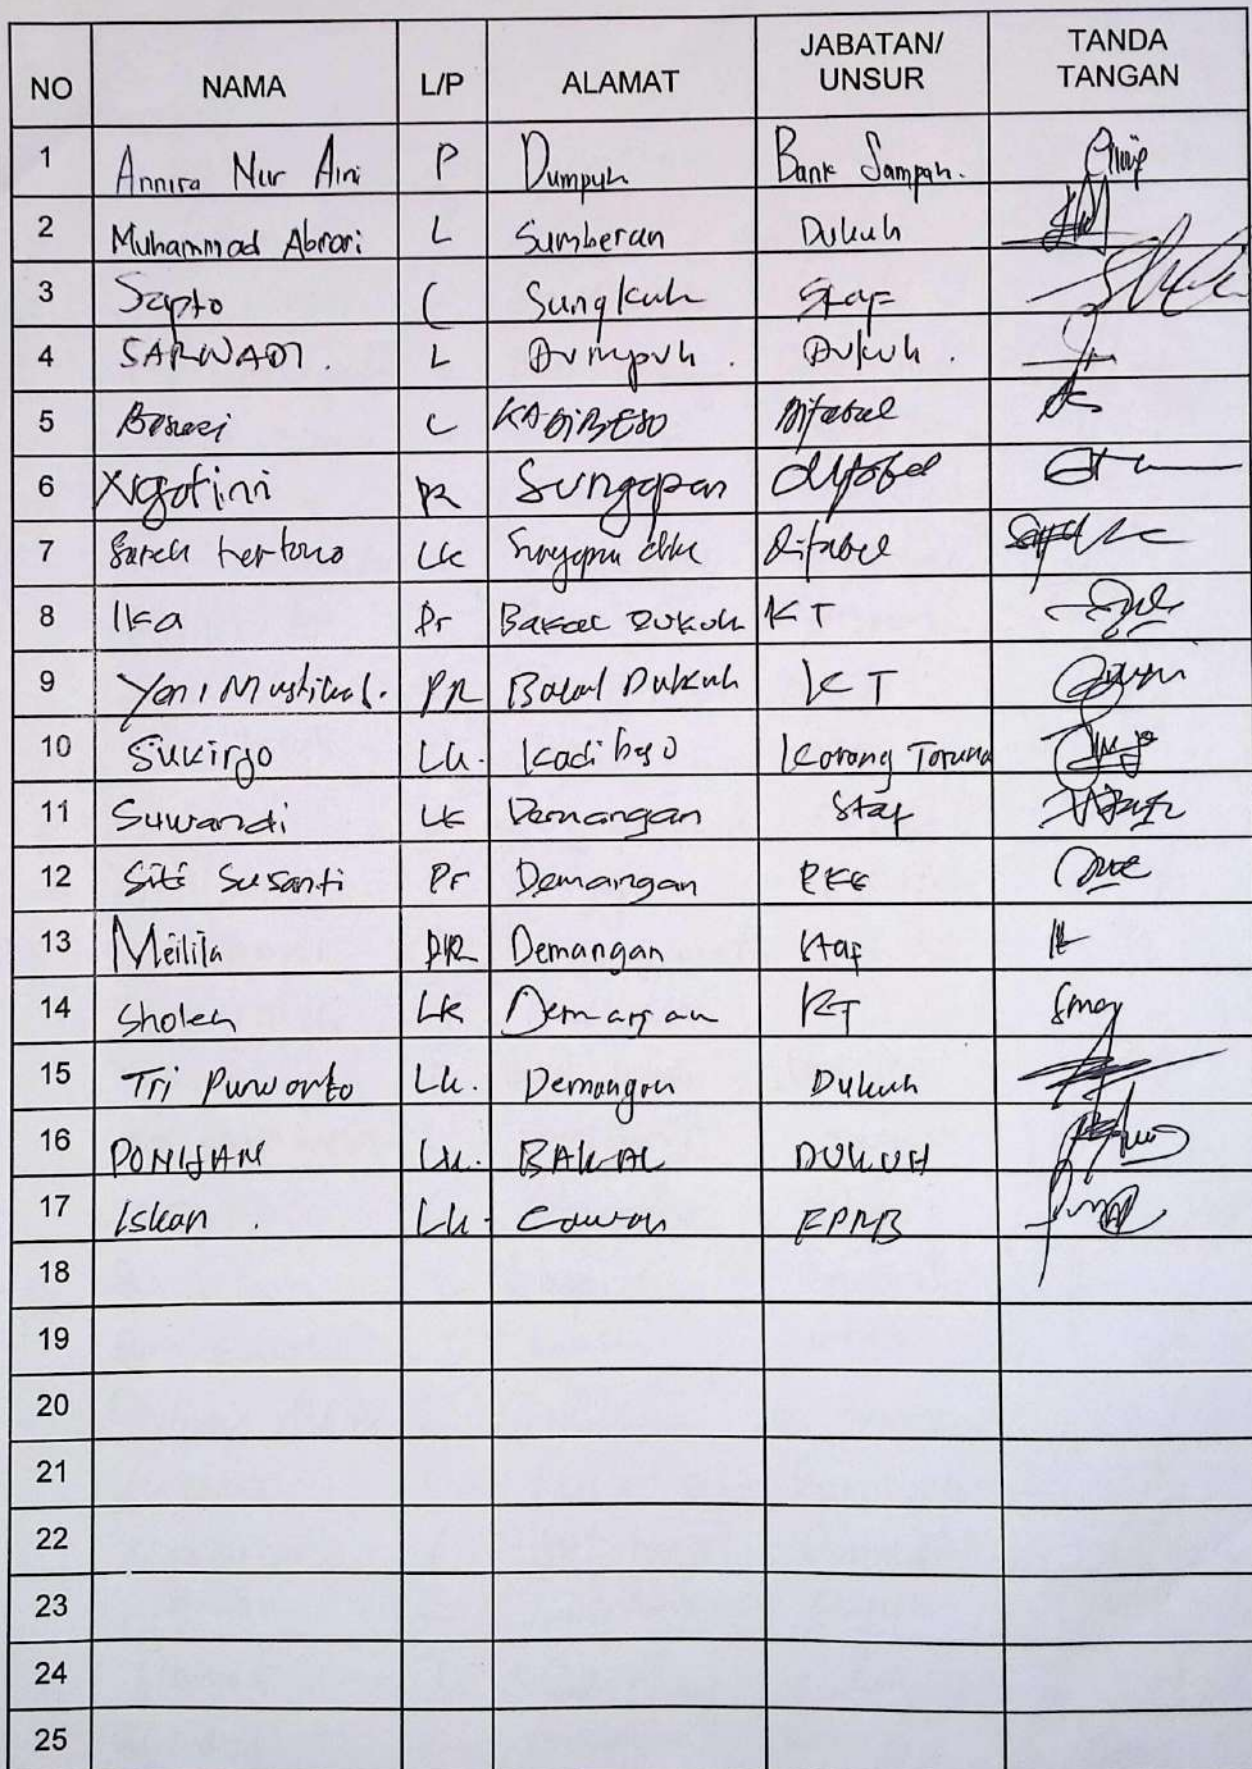 NO NAMA L/P ALAMAT JABATAN/ UNSUR TANDA TANGAN
1 Annira Nur Aini P Dumpuh Bank Sampah.
2 Muhammad Abrori L Sumberan Dukuh
3 Sapto L Sungkuh Staf
4 SARWADI. L Dumpuh. Dukuh.
5 L KADIBESO Difabel
6 Sungapan difabel
7 Lk Difabel
8 Ika Pr Bakal Dukuh KT
9 Yeni Mustika S. PR Bakal Dukuh KT
10 Sukirjo Lk. Kadibeso Karang Taruna
11 Suwandi Lk Demangan Staf
12 Siti Susanti Pr Demangan PKK
13 Meilita PR Demangan Staf
14 Sholeh Lk Demangan RT
15 Tri Purwanto Lk. Demangan Dukuh
16 PONIJAN Lk. BAKAL DUKUH
17 Iskan. Lk. FPRB
18
19
20
21
22
23
24
25